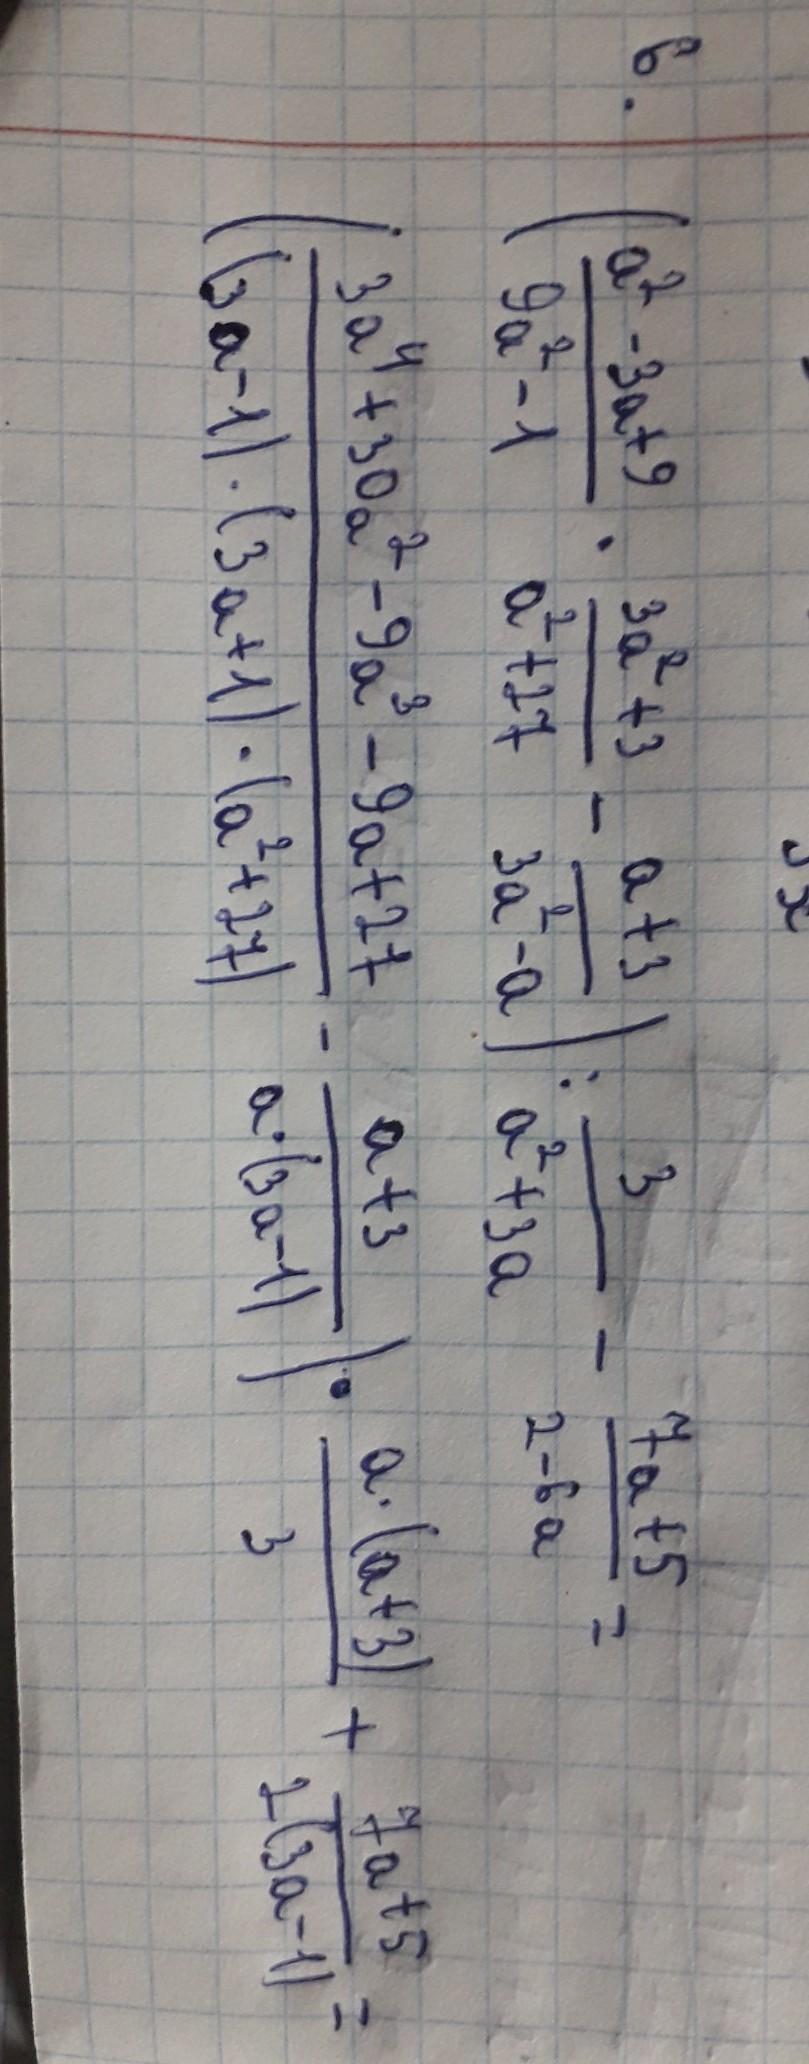 6. ( (a² - 3a + 9)/(9a² - 1) · (3a² + 3)/(a² + 27) - (a + 3)/(3a² - a) ) : 3/(a² + 3a) - (7a + 5)/(2 - 6a) =
( (3a⁴ + 30a² - 9a³ - 9a + 27)/((3a - 1) · (3a + 1) · (a² + 27)) - (a + 3)/(a · (3a - 1)) ) · (a · (a + 3))/3 + (7a + 5)/(2(3a - 1)) =